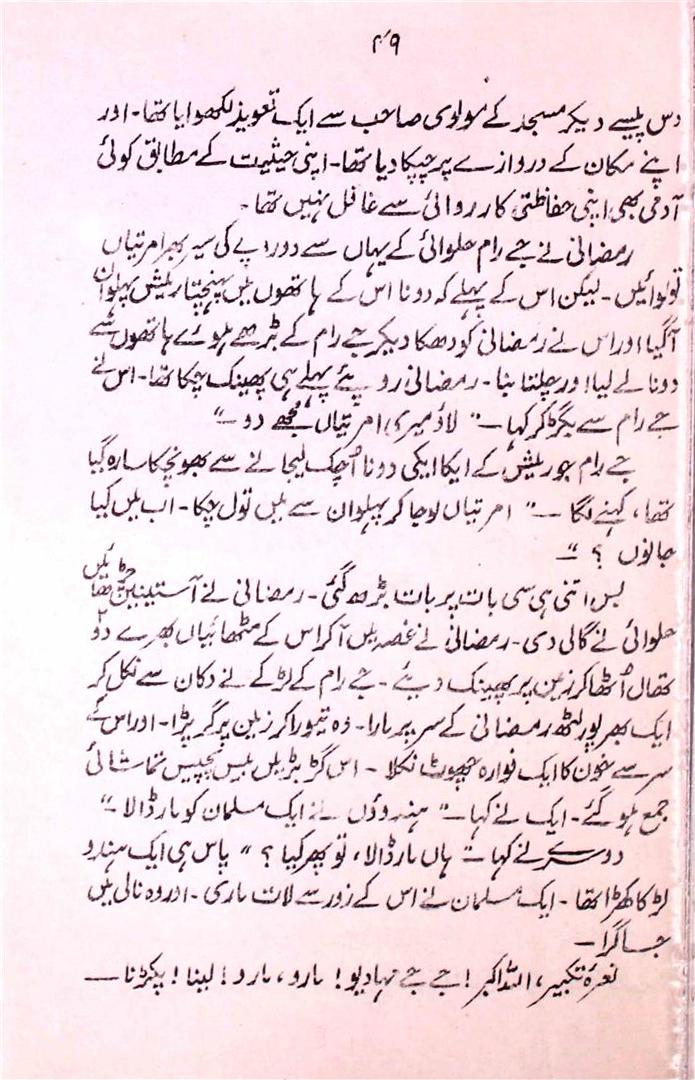 ۴۹
دس پیسے دیکر مسجد کے مولوی صاحب سے ایک تعویذ لکھوایا تھا۔ اور
اپنے مکان کے دروازے پر چپکا دیا تھا۔ اپنی حیثیت کے مطابق کوئی
آدمی بھی اپنی حفاظتی کارروائی سے غافل نہیں تھا۔
رمضانی نے جے رام حلوائی کے یہاں سے دو روپے کی سیر بھر امرتیاں
تولوائیں۔ لیکن اس کے پہلے کہ دونا اس کے ہاتھوں میں پہنچتا ریش پہلوان
آگیا اور اس نے رمضانی کو دھکا دیکر جے رام کے بڑھے ہوئے ہاتھوں سے
دونا لے لیا اور چلتا بنا۔ رمضانی روپئے پہلے ہی پھینک چکا تھا۔ اس نے
جے رام سے بگڑ کر کہا — "لاؤ میری امرتیاں مجھے دو —"
جے رام جو ریش کے ایکا ایکی دونا اُچک لیجانے سے بھونچکا سا رہ گیا
تھا، کہنے لگا — "امرتیاں لو جا کر پہلوان سے میں تول چکا۔ اب میں کیا
جانوں ؟ —"
بس اتنی ہی سی بات پر بات بڑھ گئی۔ رمضانی نے آستینیں چڑھائیں
حلوائی نے گالی دی۔ رمضانی نے غصہ میں آکر اس کے مٹھائیاں بھرے دو
تھال اُٹھا کر زمین پر پھینک دیئے۔ جے رام کے لڑکے نے دکان سے نکل کر
ایک بھرپور لٹھ رمضانی کے سر پر مارا۔ وہ تیورا کر زمین پر گر پڑا۔ اور اس کے
سر سے خون کا ایک فوارہ چھوٹ نکلا۔ اس گڑبڑ میں بیس پچیس تماشائی
جمع ہو گئے۔ ایک نے کہا — "ہندوؤں نے ایک مسلمان کو مار ڈالا —"
دوسرے نے کہا — "ہاں مار ڈالا، تو پھر کیا ؟" پاس ہی ایک ہندو
لڑکا کھڑا تھا۔ ایک مسلمان نے اس کے زور سے لات ماری۔ اور وہ نالی میں
جا گرا —
نعرۂ تکبیر، اللہ اکبر! جے جے مہادیو! مارو، مارو! لینا! پکڑنا —